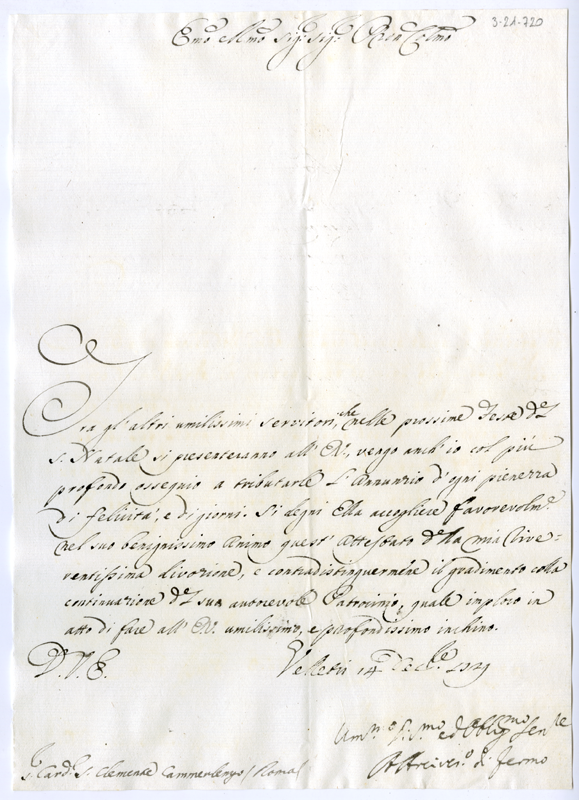 3-21-720
Emo Rmo Sigr. Sigr. Pron Colmo
Tra gl'altri umilissimi servitori, che nelle prossime Feste del
S. Natale si presenteranno all'E.V., vengo anch'io col più
profondo ossequio a tributarle l'Annunzio d'ogni pienezza
di felicità, e di giorni. Si degni Ella accogliere favorevolmte
nel suo benignissimo Animo quest'Attestato della mia rive=
rentissima divozione, e contradistinguermene il gradimento colla
continuazione del suo autorevole Patrocinio, quale imploro in
atto di fare all'E.V. umilissimo, e profondissimo inchino.
D. V. E.
Velletri 14 Decbre
Umo
ed Obligmo
di Fermo
S. Card. S. Clemente Cammerlengo / Roma /